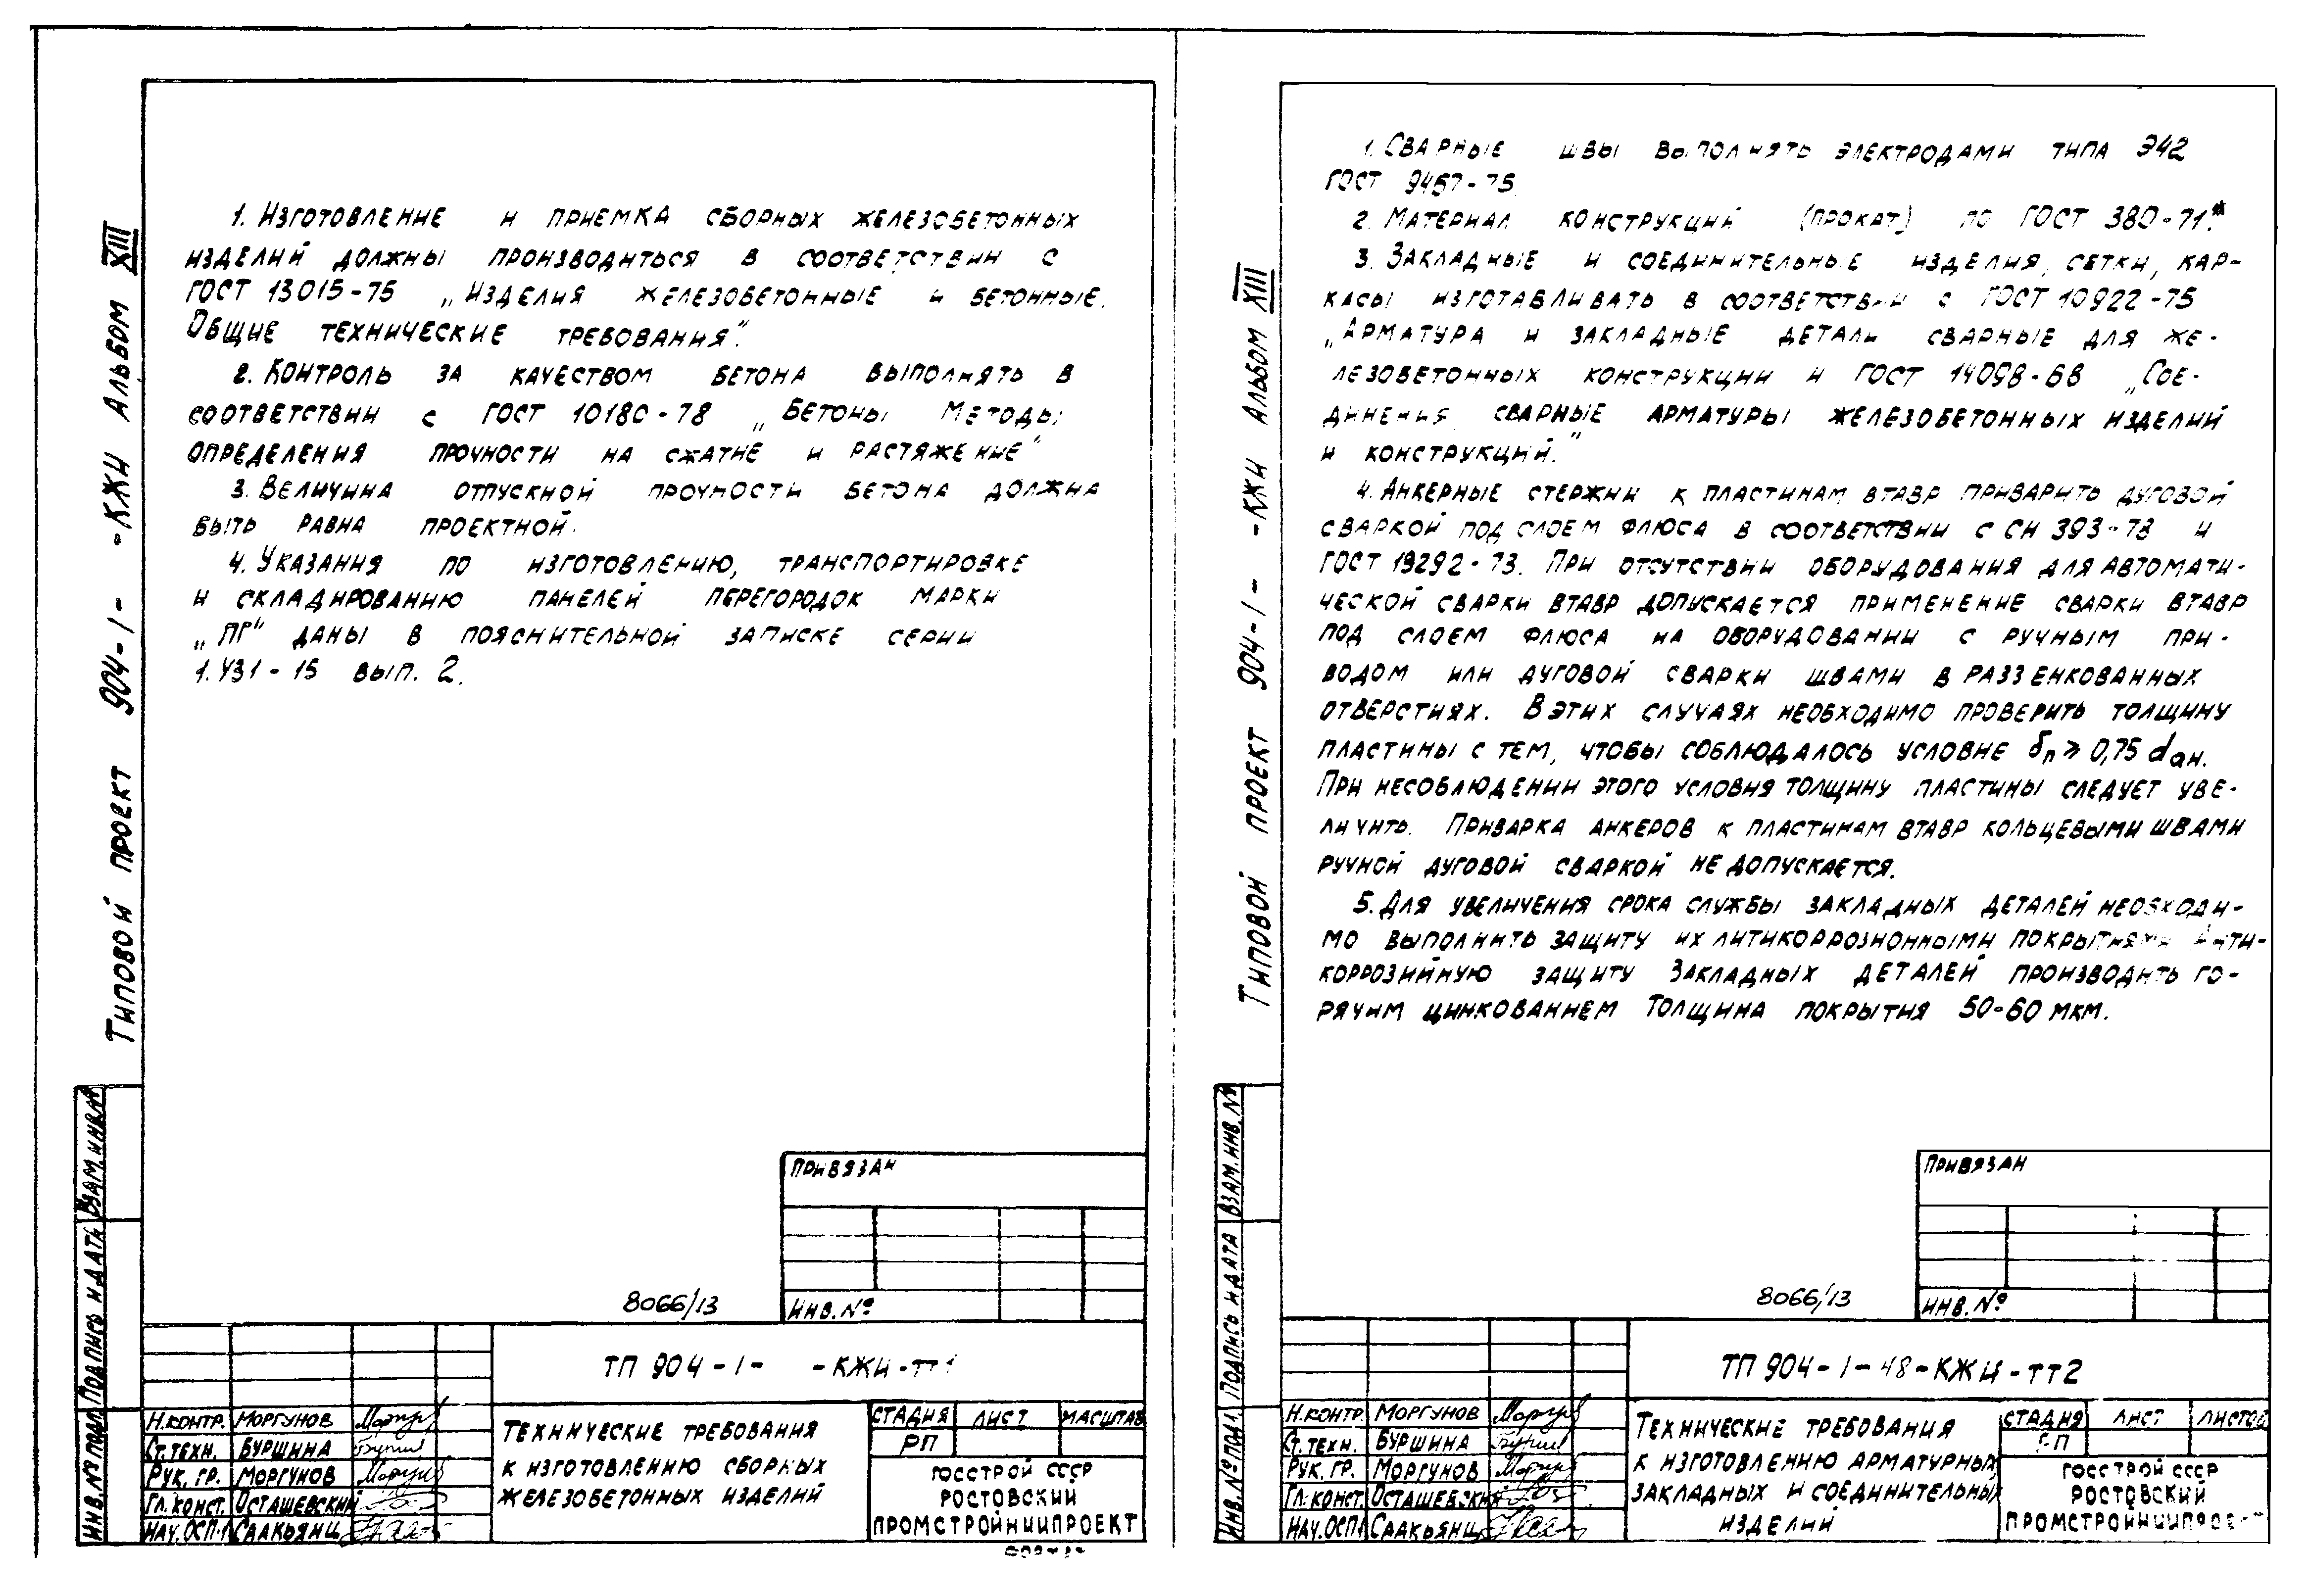 Типовой проект 904-1- -КЖИ Альбом XIII
1. Изготовление и приемка сборных железобетонных
изделий должны производиться в соответствии с
ГОСТ 13015-75 „Изделия железобетонные и бетонные.
Общие технические требования".
2. Контроль за качеством бетона выполнять в
соответствии с ГОСТ 10180-78 „Бетоны Методы
определения прочности на сжатие и растяжение"
3. Величина отпускной прочности бетона должна
быть равна проектной.
4. Указания по изготовлению, транспортировке
и складированию панелей перегородок марки
„ПГ" даны в пояснительной записке серии
1.431-15 вып. 2.
Взам. инв. №
Подпись и дата
Инв. № подл.
Привязан
Инв. №
8066/13
ТП 904-1- -КЖИ-ТТ1
Н.контр. Моргунов
Ст.техн. Буршина
Рук. гр. Моргунов
Гл. конст. Осташевский
Нач. ОСП-1 Саакьянц
Технические требования
к изготовлению сборных
железобетонных изделий
Стадия Лист Масштаб
РП
Госстрой СССР
Ростовский
Промстройниипроект
Типовой проект 904-1- -КЖИ Альбом XIII
1. Сварные швы выполнять электродами типа Э42
ГОСТ 9467-75.
2. Материал конструкций (прокат) по ГОСТ 380-71*.
3. Закладные и соединительные изделия, сетки, кар-
касы изготавливать в соответствии с ГОСТ 10922-75
„Арматура и закладные детали сварные для же-
лезобетонных конструкции и ГОСТ 14098-68 „Сое-
динения сварные арматуры железобетонных изделий
и конструкций."
4. Анкерные стержни к пластинам втавр приварить дуговой
сваркой под слоем флюса в соответствии с СН 393-78 и
ГОСТ 19292-73. При отсутствии оборудования для автомати-
ческой сварки втавр допускается применение сварки втавр
под слоем флюса на оборудовании с ручным при-
водом или дуговой сварки швами в раззенкованных
отверстиях. В этих случаях необходимо проверить толщину
пластины с тем, чтобы соблюдалось условие δп ≥ 0,75 dан.
При несоблюдении этого условия толщину пластины следует уве-
личить. Приварка анкеров к пластинам втавр кольцевыми швами
ручной дуговой сваркой не допускается.
5. Для увеличения срока службы закладных деталей необходи-
мо выполнить защиту их антикоррозионными покрытиями Анти-
коррозийную защиту закладных деталей производить го-
рячим цинкованием Толщина покрытия 50-60 мкм.
Взам. инв. №
Подпись и дата
Инв. № подл.
Привязан
Инв. №
8066/13
ТП 904-1-48-КЖИ-ТТ2
Н.контр. Моргунов
Ст.техн. Буршина
Рук. гр. Моргунов
Гл. конст. Осташевский
Нач. ОСП1 Саакьянц
Технические требования
к изготовлению арматурных,
закладных и соединительных
изделий
Стадия Лист Листов
РП
Госстрой СССР
Ростовский
Промстройниипроект